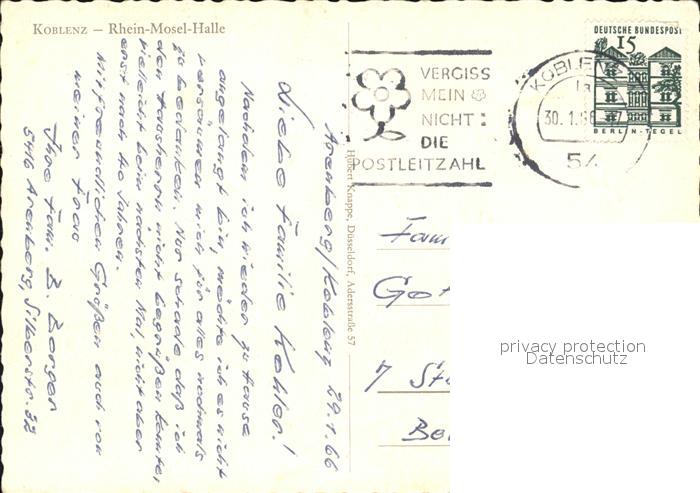 KOBLENZ – Rhein-Mosel-Halle
Arenberg/Koblenz 29.1.66
Liebe Familie Kohler!
Nachdem ich wieder zu Hause
angelangt bin, möchte ich es nicht
versäumen mich für alles nochmals
zu bedanken. Nur schade daß ich
den
nicht begrüßen konnte,
vielleicht beim nächsten Mal, nicht aber
erst nach 40 Jahren.
Mit freundlichen Grüßen auch von
meiner Frau
Ihre Fam. B. Berger
5416 Arenberg, Silberstr. 32
Hubert Knappe, Düsseldorf, Adersstraße 57
VERGISS
MEIN
NICHT:
DIE
POSTLEITZAHL
KOBLEN
30.1.66
54
DEUTSCHE BUNDESPOST
15
BERLIN-TEGEL
Fam
Got
7 St
Be
privacy protection
Datenschutz